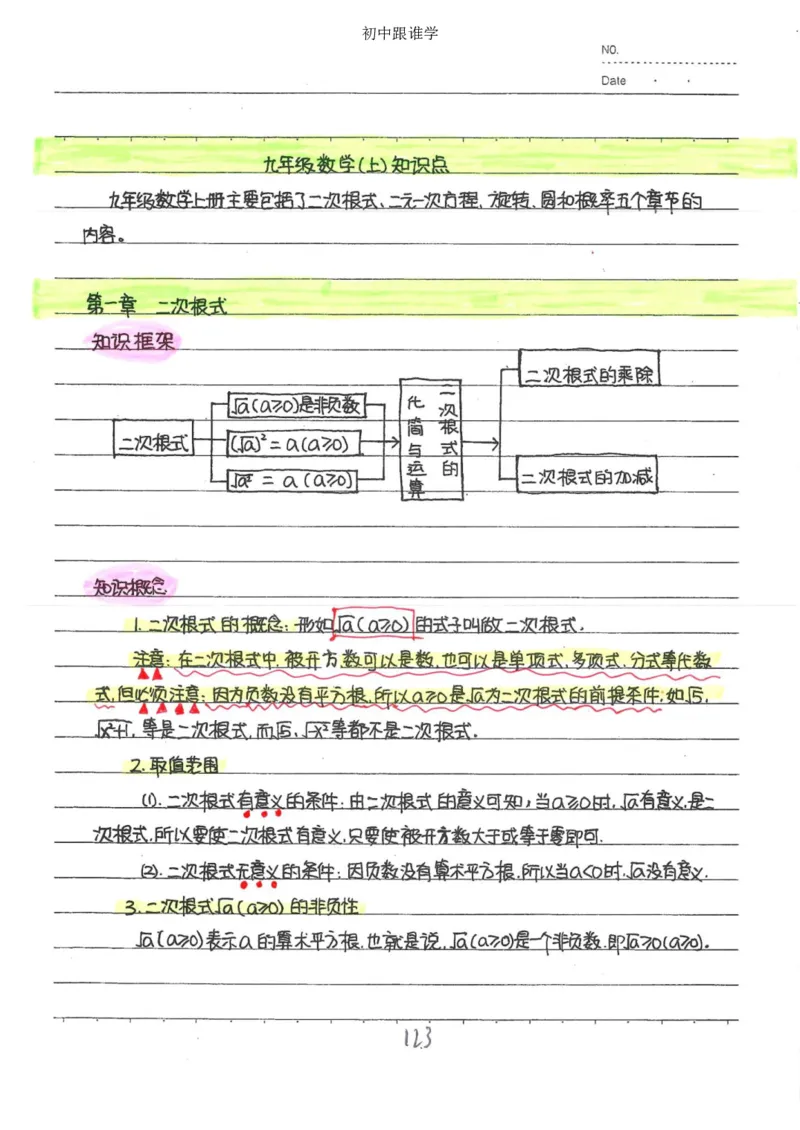 初中跟谁学
NO.
Date
九年级数学(上)知识点
九年级数学上册主要包括了二次根式、二元一次方程、旋转、圆和概率五个章节的
内容。
第一章 二次根式
知识框架
二次根式
√a(a≥0)是非负数
(√a)²=a(a≥0)
√a²=a(a≥0)
二次根式的化简与运算
二次根式的乘除
二次根式的加减
知识概念
1.二次根式的概念:形如√a(a≥0)的式子叫做二次根式.
注意:在二次根式中,被开方数可以是数,也可以是单项式,多项式,分式等代数
式,但必须注意:因为负数没有平方根,所以a≥0是√a为二次根式的前提条件;如√5,
√x²+1,等是二次根式,而√-5,√-x²等都不是二次根式.
2.取值范围
(1).二次根式有意义的条件:由二次根式的意义可知,当a≥0时,√a有意义,是二
次根式,所以要使二次根式有意义,只要使被开方数大于或等于零即可.
(2).二次根式无意义的条件:因负数没有算术平方根,所以当a<0时,√a没有意义.
3.二次根式√a(a≥0)的非负性
√a(a≥0)表示a的算术平方根,也就是说,√a(a≥0)是一个非负数,即√a≥0(a≥0).
123